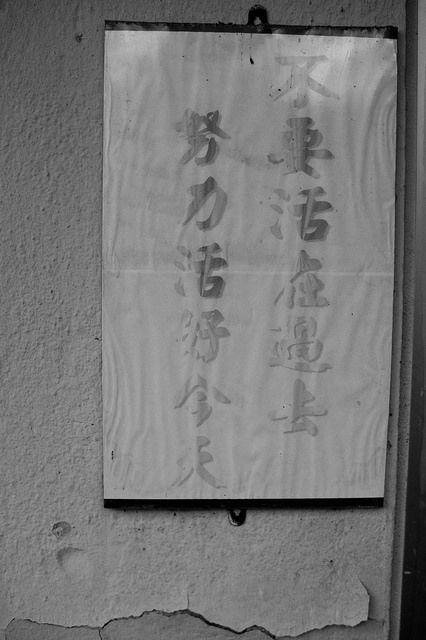 不要活在過去
努力活好今天